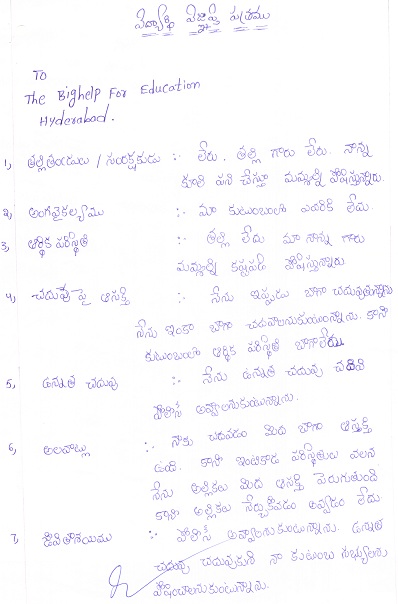 విద్యార్థి విజ్ఞప్తి పత్రము
To
The Bighelp For Education
Hyderabad.
1, తల్లితండ్రులు / సంరక్షకుడు :- లేరు. తల్లి గారు లేరు. నాన్న
కూలి పని చేస్తూ మమ్మల్ని పోషిస్తున్నారు.
2, అంగవైకల్యాము :- మా కుటుంబంలో ఎవరికి లేదు.
3, ఆర్థిక పరిస్థితి :- తల్లి లేదు మా నాన్న గారు
మమ్మల్ని కష్టపడి పోషిస్తున్నారు
4, చదువు పై ఆసక్తి :- నేను ఇప్పుడు బాగా చదువుతున్నాను
నేను ఇంకా బాగా చదవాలనుకుంటున్నాను. కాని
కుటుంబంలో ఆర్థిక పరిస్థితి బాగాలేదు
5, ఉన్నత చదువు :- నేను ఉన్నత చదువు చదివి
పోలీస్ అవ్వాలనుకుంటున్నాను.
6, అలవాట్లు :- నాకు చదవడం మీద బాగా ఆసక్తి
ఉంది. కాని ఇంటికాడ పరిస్థితుల వలన
నేను అల్లికలు మీద ఆసక్తి పెరుగుతుంది
కాని అల్లికలు నేర్చుకోవడం అవ్వడం లేదు
7, జీవితాశయము :- పోలీస్ అవ్వాలనుకుంటున్నాను. ఉన్నత
చదువు చదువుకుని నా కుటుంబ సభ్యులను
పోషించాలనుకుంటున్నాను.